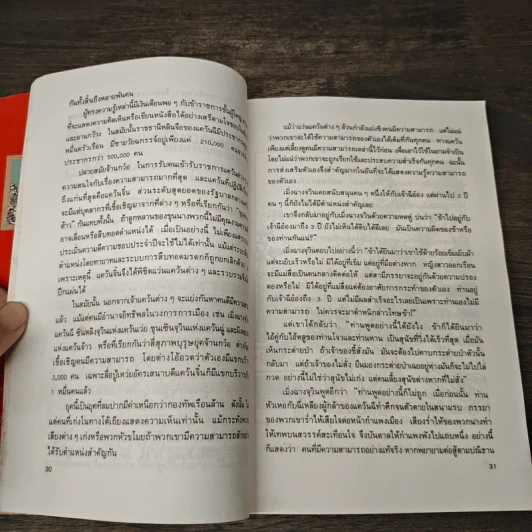 กันทั้งสิ้นถึงหลายพันคน
ผู้ทรงความรู้เหล่านี้มีเงินเดือนพอ ๆ กับข้าราชการชั้นผู้ใหญ่
ที่จะแสดงความคิดเห็นหรือเขียนหนังสือได้อย่างเสรีตามใจชอบ
และลานกว้าง ในสมัยนั้นราชธานีหลินจือของแคว้นฉีมีประชากร
หมื่นครัวเรือน มีชายวัยฉกรรจ์อยู่เพียงแค่ 210,000 คน
ประชากรกว่า 500,000 คน
ปลายสมัยจ้านกว๋อ ในการรับคนเข้ารับราชการแคว้นต่าง
ความสนใจกับเรื่องความสามารถมากที่สุด และแคว้นที่ปฏิบัติ
ถึงแก่นที่สุดคือแคว้นจิ๋น ส่วนระดับสุดยอดของรัฐบาลกลาง
จะมีแต่บุคลากรที่เชื้อเชิญมาจากที่ต่าง ๆ หรือที่เรียกกันว่า
ต้าว" กันแทบทั้งนั้น ถ้าลูกหลานของขุนนางพวกนี้ไม่มีคุณงาม
อาจเลื่อนหรือสืบทอดตำแหน่งได้ เมื่อเป็นอย่างนี้ ไม่เพียงแต่
ประเมินความดีความชอบประจำปีจะใช้ไม่ได้เท่านั้น แม้แต่ระบบ
ตำแหน่งโดยทายาทและระบบการสืบทอดมรดกก็ถูกยกเลิกด้วย
เพราะเหตุนี้ แคว้นจิ๋นจึงได้พิชิตแว่นแคว้นต่าง ๆ และรวบรวมจีน
ปึกแผ่นได้
ในสมัยนั้น นอกจากเจ้าแคว้นต่าง ๆ จะแย่งกันหาคนดีมีความ
แล้ว แม้แต่คนมีอำนาจอิทธิพลในวงการการเมือง เช่น เมิ่งฉางจวิน
แคว้นฉี ซิ่นหลิงจวินแห่งแคว้นเว่ย ชุนเซินจวินแห่งแคว้นฉู่ และผิง
แห่งแคว้นจ้าว หรือที่เรียกกันว่าสี่สุภาพบุรุษยุคจ้านกว๋อ ต่าง
เชื้อเชิญคนมีความสามารถ โดยต่างโอ้อวดว่าตัวเองมีแขกบริ
3,000 คน เฉพาะลื่อปู้เหว่ยอัครเสนาบดีแคว้นจิ๋นก็มีแขกบริวาร
1 หมื่นคนแล้ว
ยุคนี้เป็นยุคที่ลมปากมีค่าเหนือกว่ากองทัพเรือนล้าน ดังนั้น
แต่คนที่เก่งในทางโต้เถียงแสดงความเห็นเท่านั้น แม้กระทั่ง
เสียงต่าง ๆ เก่งหรือพวกหัวขโมยถ้าพวกเขามีความสามารถ
ได้รับตำแหน่งสำคัญกัน
30
แม้ว่าแว่นแคว้นต่าง ๆ ล้วนกำลังแย่งชิงคนมีความสามารถ แต่ไม่แน่
ว่าพวกเขาจะได้ใช้ความสามารถของตัวเองได้เต็มที่กันทุกคน ทางแคว้น
เพียงแต่เลี้ยงดูคนมีความสามารถเหล่านี้ไว้ก่อน เพื่อเอาไว้ใช้ในยามจำเป็น
โดยไม่แน่ว่าพวกเขาจะถูกเรียกใช้และประสบความสำเร็จกันทุกคน ฉะนั้น
การส่งเสริมตัวเองจึงสำคัญมากในอันที่จะได้แสดงความรู้ความสามารถ
ของตัวเอง
เมิ่งฉางจวินเคยสนับสนุนคน ๆ หนึ่งให้กับเจ้าฉีอ๋อง แต่ผ่านไป 3 ปี
คน ๆ นี้ก็ยังไม่ได้มีตำแหน่งสำคัญเลย
เขาจึงกลับมาอยู่กับเมิ่งฉางจวินด้วยความหดหู่ บ่นว่า "ข้าไปอยู่กับ
เจ้าฉีอ๋องมาถึง 3 ปี ยังไม่เห็นได้ดิบได้ดีเลย มันเป็นความผิดของข้าหรือ
ของท่านกันแน่?"
เมิ่งฉางจวินตอบไปอย่างนี้ว่า "ข้าได้ยินมาว่าเขาใช้ด้วยร้อยเข็มเย็บผ้า
แต่จะเย็บเร็วหรือไม่ มิได้อยู่ที่เข็ม แต่อยู่ที่มือต่างหาก หญิงสาวออกเรือน
จะมีแม่สื่อเป็นคนกลางติดต่อให้ แต่สามีภรรยาจะอยู่กันด้วยความปรอง
ดองหรือไม่ มิได้อยู่ที่แม่สื่อแต่ต้องอาศัยการกระทำของตัวเอง ท่านอยู่
กับเจ้าฉีอ๋องถึง 3 ปี แต่ไม่มีผลสำเร็จอะไรเลยเป็นเพราะท่านเองไม่มี
ความสามารถ ไม่ควรจะมาตำหนิกล่าวโทษข้า!"
แต่เขาโต้กลับว่า "ท่านพูดอย่างนี้ได้ยังไง ข้าก็ได้ยินมาว่า
ไอ้ตูบกับไอ้หูของโจวเป็นสุนัขที่วิ่งได้เร็วที่สุด เมื่อมัน
เห็นกระต่ายป่า ถ้าเจ้าของชี้สั่งมัน มันจะต้องไปคาบกระต่ายป่าตัวนั้น
กลับมา แต่ถ้าเจ้าของไม่สั่ง ยืนมองกระต่ายป่าเฉยอยู่ห่างมันก็จะไม่ไปไล่
กวด อย่างนี้ไม่ใช่ว่าสุนัขไม่เก่ง แต่คนเลี้ยงสุนัขต่างหากที่ไม่สั่ง"
เมิ่งฉางจวินพูดอีกว่า "ท่านพูดอย่างนี้ก็ไม่ถูก เมื่อก่อนนั้น
ภรรยา
ของพวกเขาร่ำไห้เสียใจต่อหน้ากำแพงเมือง เสียงร่ำไห้ของพวกนางทำ
ให้เทพบนสวรรค์สะเทือนใจ จึงบันดาลให้กำแพงพังไปแถบหนึ่ง อย่างนี้
ก็แสดงว่า คนที่มีความสามารถอย่างแท้จริง หากพยายามต่อสู้ตามปณิธาน
31